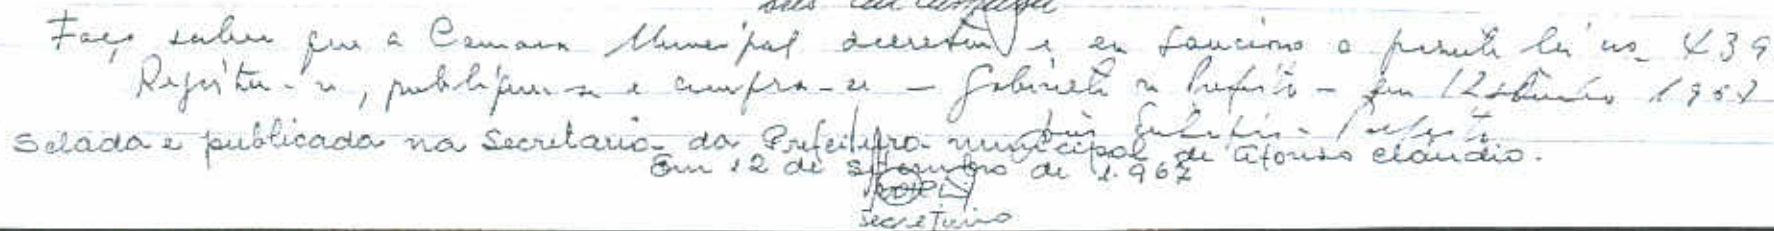 Faço saber que a Camara Municipal decretou e eu sanciono o presente lei no. 439
Registre-se, publique-se e cumpra-se - Gabinete do Prefeito - em 12 setembro 1967
Prefeito
Selada e publicada na Secretaria da Prefeitura municipal de Afonso Claudio.
Em 12 de setembro de 1.967
Secretario